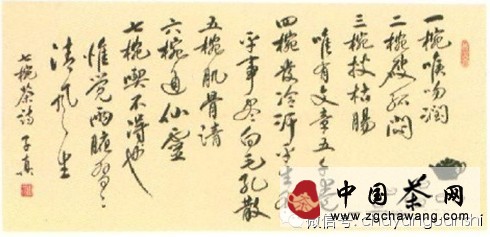 一椀喉吻润
二椀破孤闷
三椀搜枯肠
唯有文章五千卷
四椀发冷汗平生不
平事尽向毛孔散
五椀肌骨清
六椀通仙灵
七椀喫不得也
惟觉两腋习习
清风生
七椀茶诗 子真
中国茶网
www.zgchawang.com
微信号: